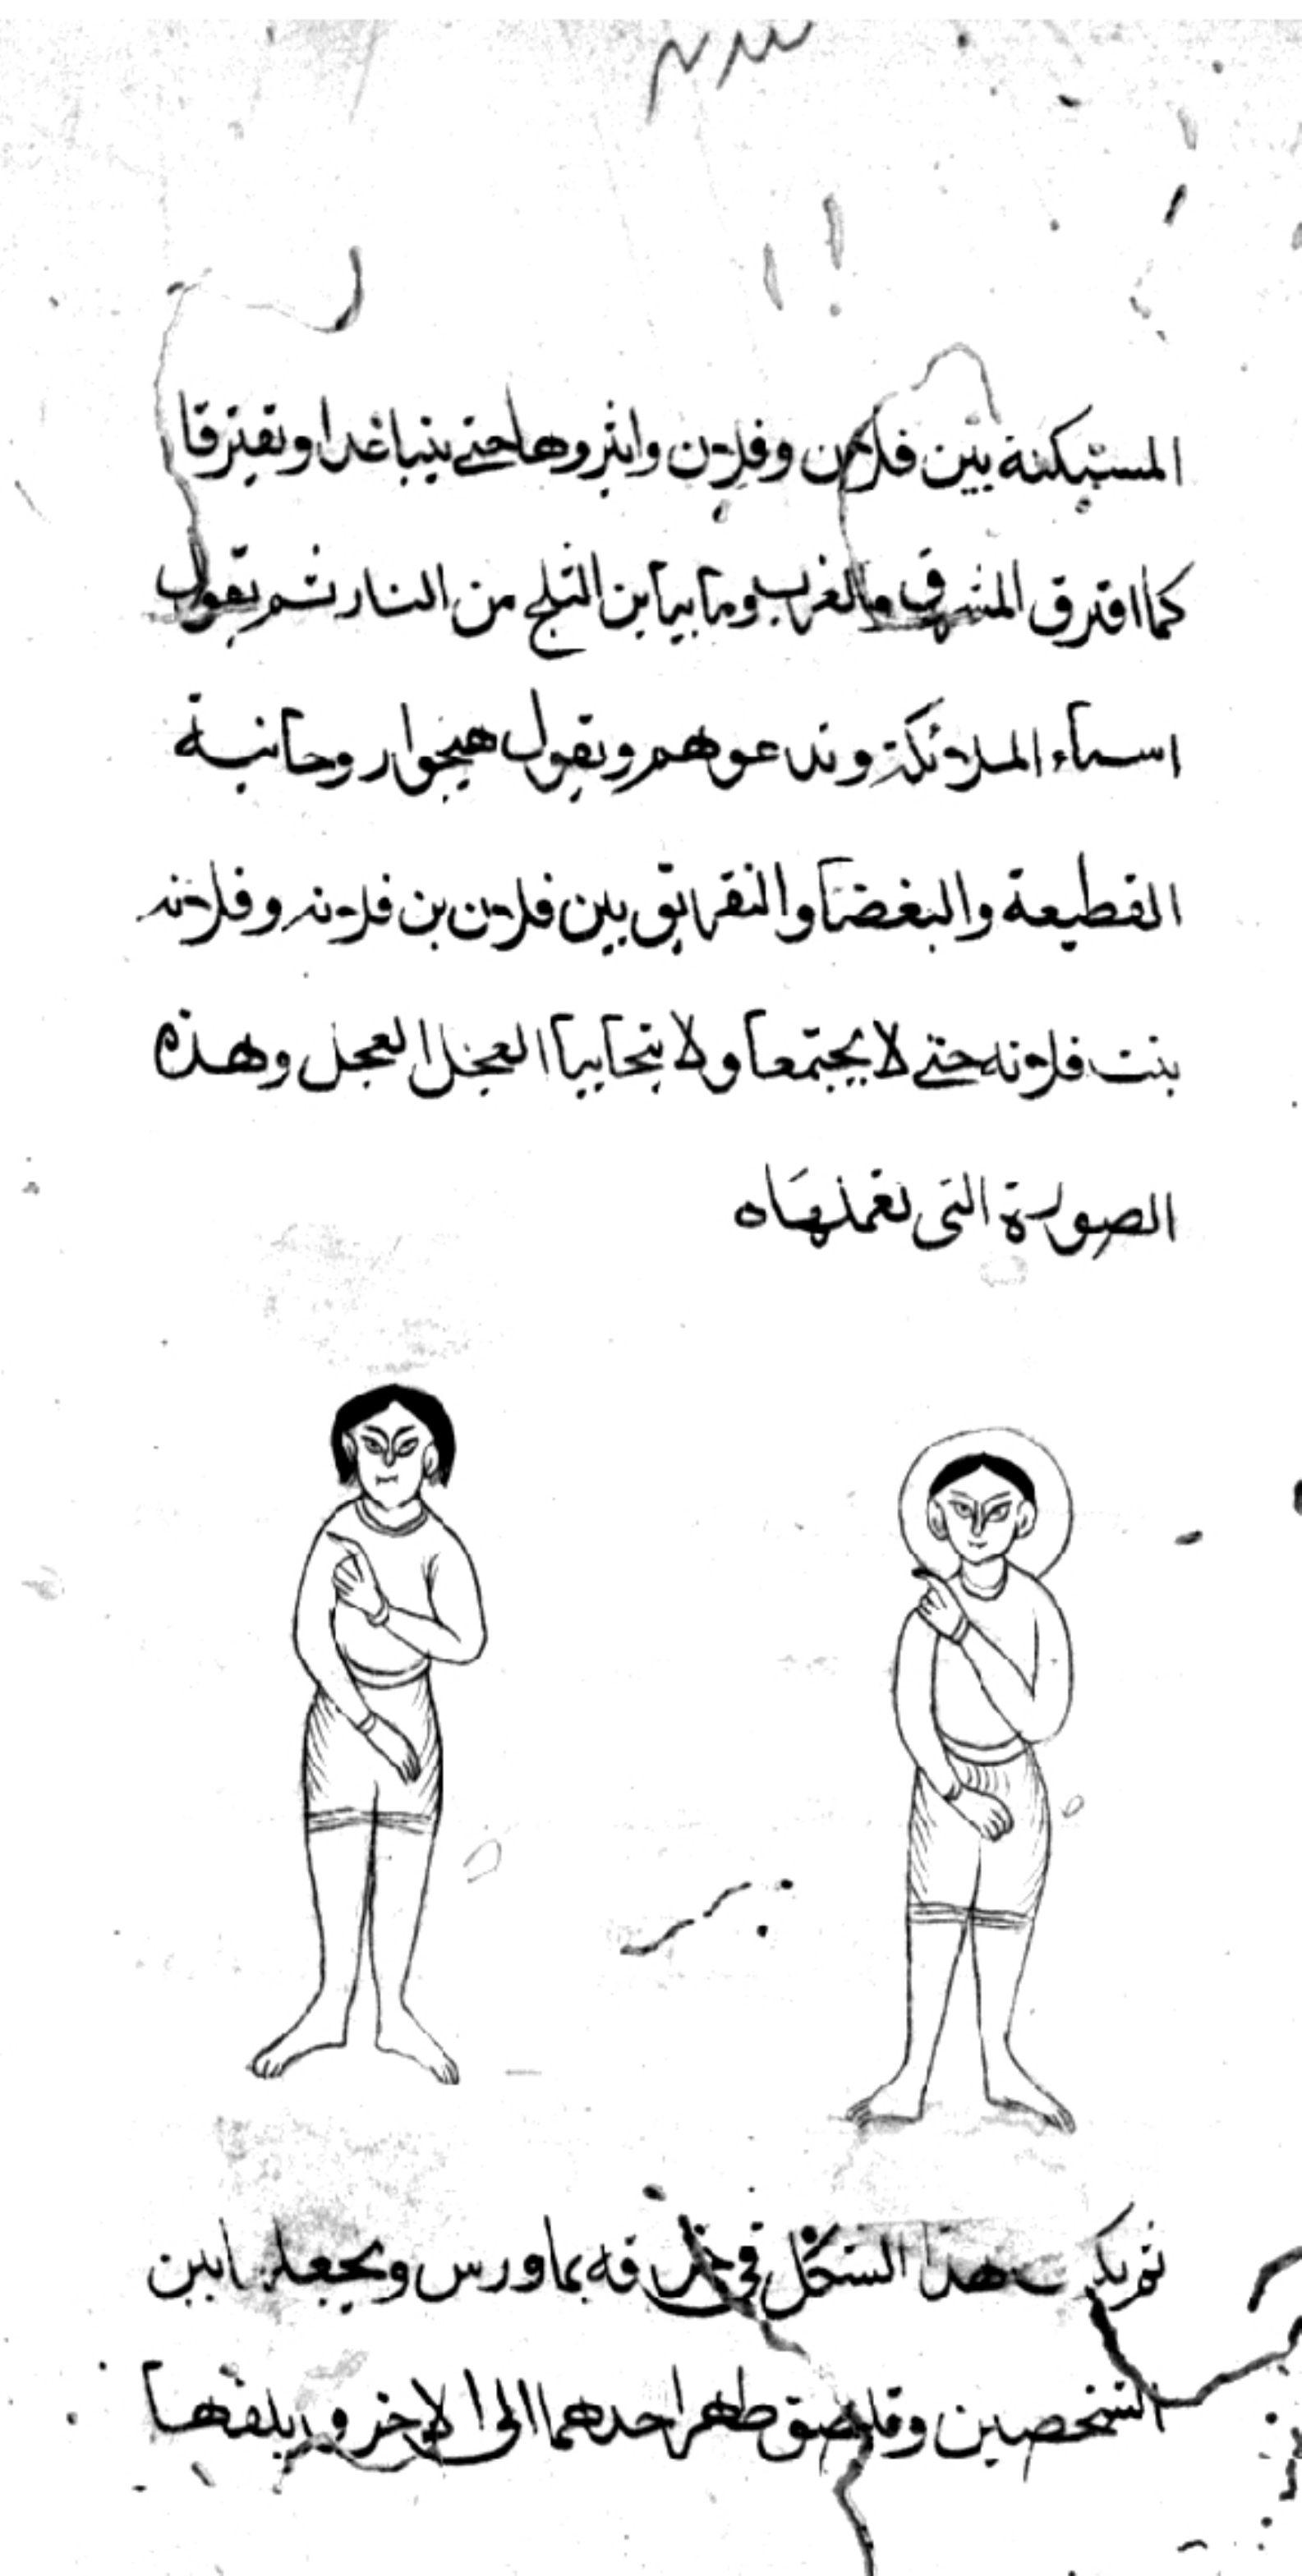 المستكنة بين فلان وفلان واثيروها حتى يتباغدا ويفترقا
كما افترق المشرق والغرب وما يباين الثلج من النار ثم يقول
اسماء الملائكة وتدعوهم ويقول هيجوا روحانية
القطيعة والبغضا والتفريق بين فلان بن فلانه وفلانه
بنت فلانه حتى لا يجتمعا ولا يتحابيا العجل العجل وهذه
الصورة التى تعملها
ثم يكتب هذا الشكل فى خرقه بماورس ويجعل بين
الشخصين وقد لصق ظهر احدهما الى الاخر و يلفها